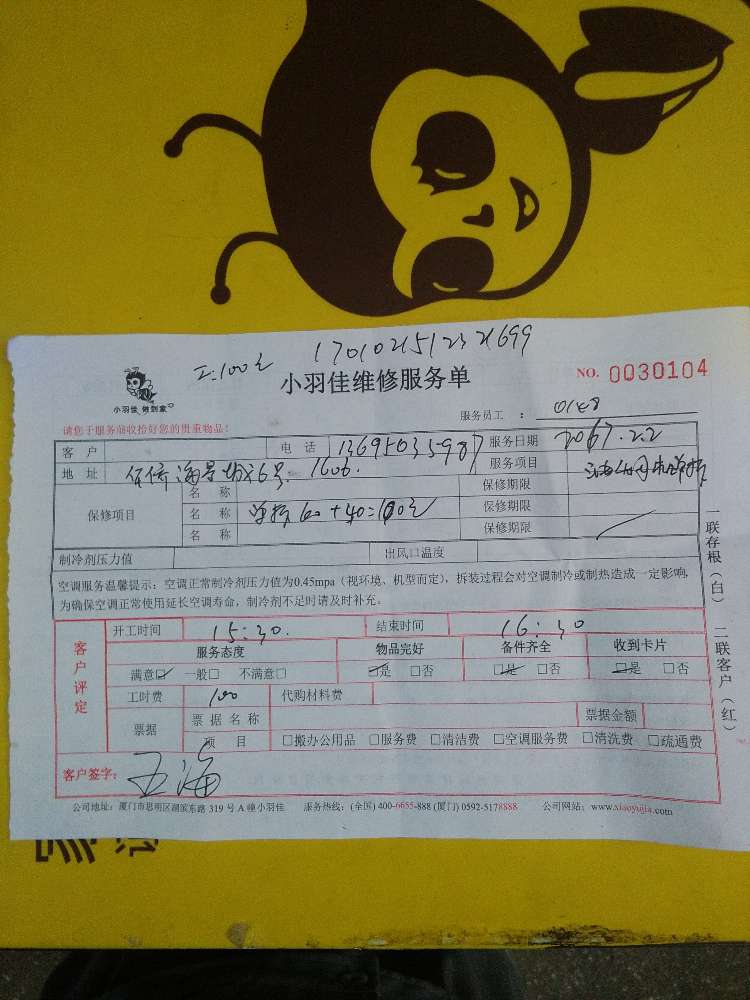 工.100元 17010215123 699
小羽佳 做到家
小羽佳维修服务单
NO. 0030104
请您于服务前收拾好您的贵重物品！
服务员工 ：
客 户 电 话 13695035987 服务日期
地 址 侨海景城 6号 1606 服务项目
保修项目 名 称 保修期限
名 称 60+40=100元 保修期限
名 称 保修期限
制冷剂压力值 出风口温度
空调服务温馨提示：空调正常制冷剂压力值为0.45mpa（视环境、机型而定），拆装过程会对空调制冷或制热造成一定影响，
为确保空调正常使用延长空调寿命，制冷剂不足时请及时补充。
客户评定
开工时间 15:30. 结束时间 16:30
服务态度 物品完好 备件齐全 收到卡片
满意☑ 一般□ 不满意□ ☑是 □否 ☑是 □否 ☑是 □否
工时费 100 代购材料费
票据 票 据 名 称 票据金额
项 目 □搬办公用品 □服务费 □清洁费 □空调服务费 □清洗费 □疏通费
客户签字： 王海
公司地址：厦门市思明区湖滨东路 319 号 A 幢小羽佳 服务热线：(全国) 400-6655-888 (厦门) 0592-5178888 公司网站：www.xiaoyujia.com
一联存根（白） 二联客户（红）